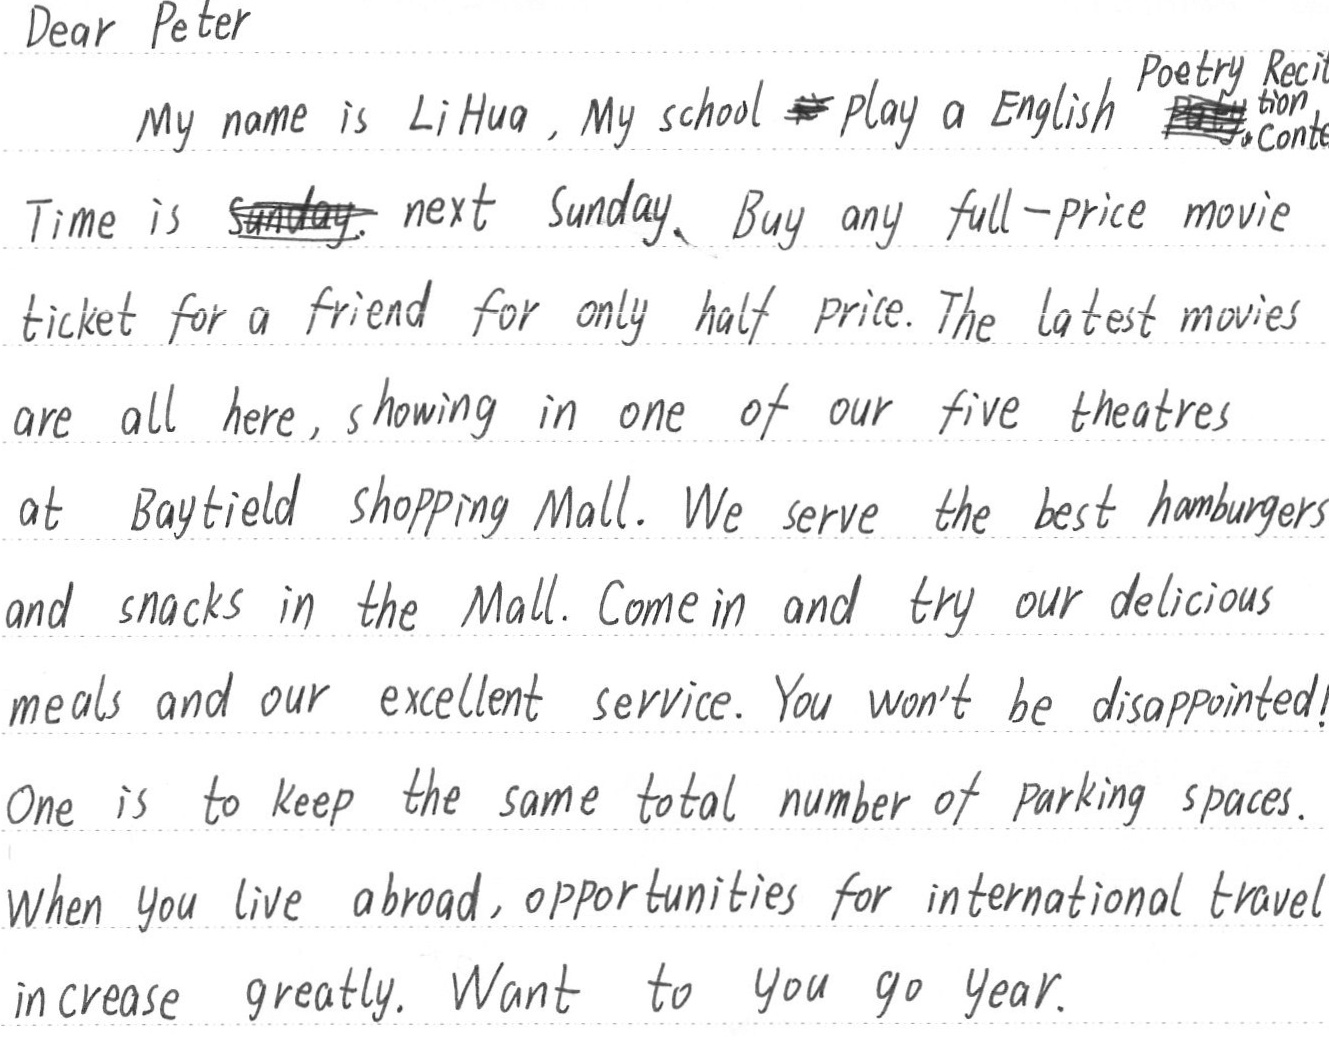 Dear Peter
My name is Li Hua, My school play a English Poetry Recit
tion
Conte
Time is next Sunday、 Buy any full-price movie
ticket for a friend for only half price. The latest movies
are all here, showing in one of our five theatres
at Baytield shopping Mall. We serve the best hamburgers
and snacks in the Mall. Come in and try our delicious
meals and our excellent service. You won't be disappointed!
One is to keep the same total number of parking spaces.
When you live abroad, opportunities for international travel
increase greatly. Want to you go year.